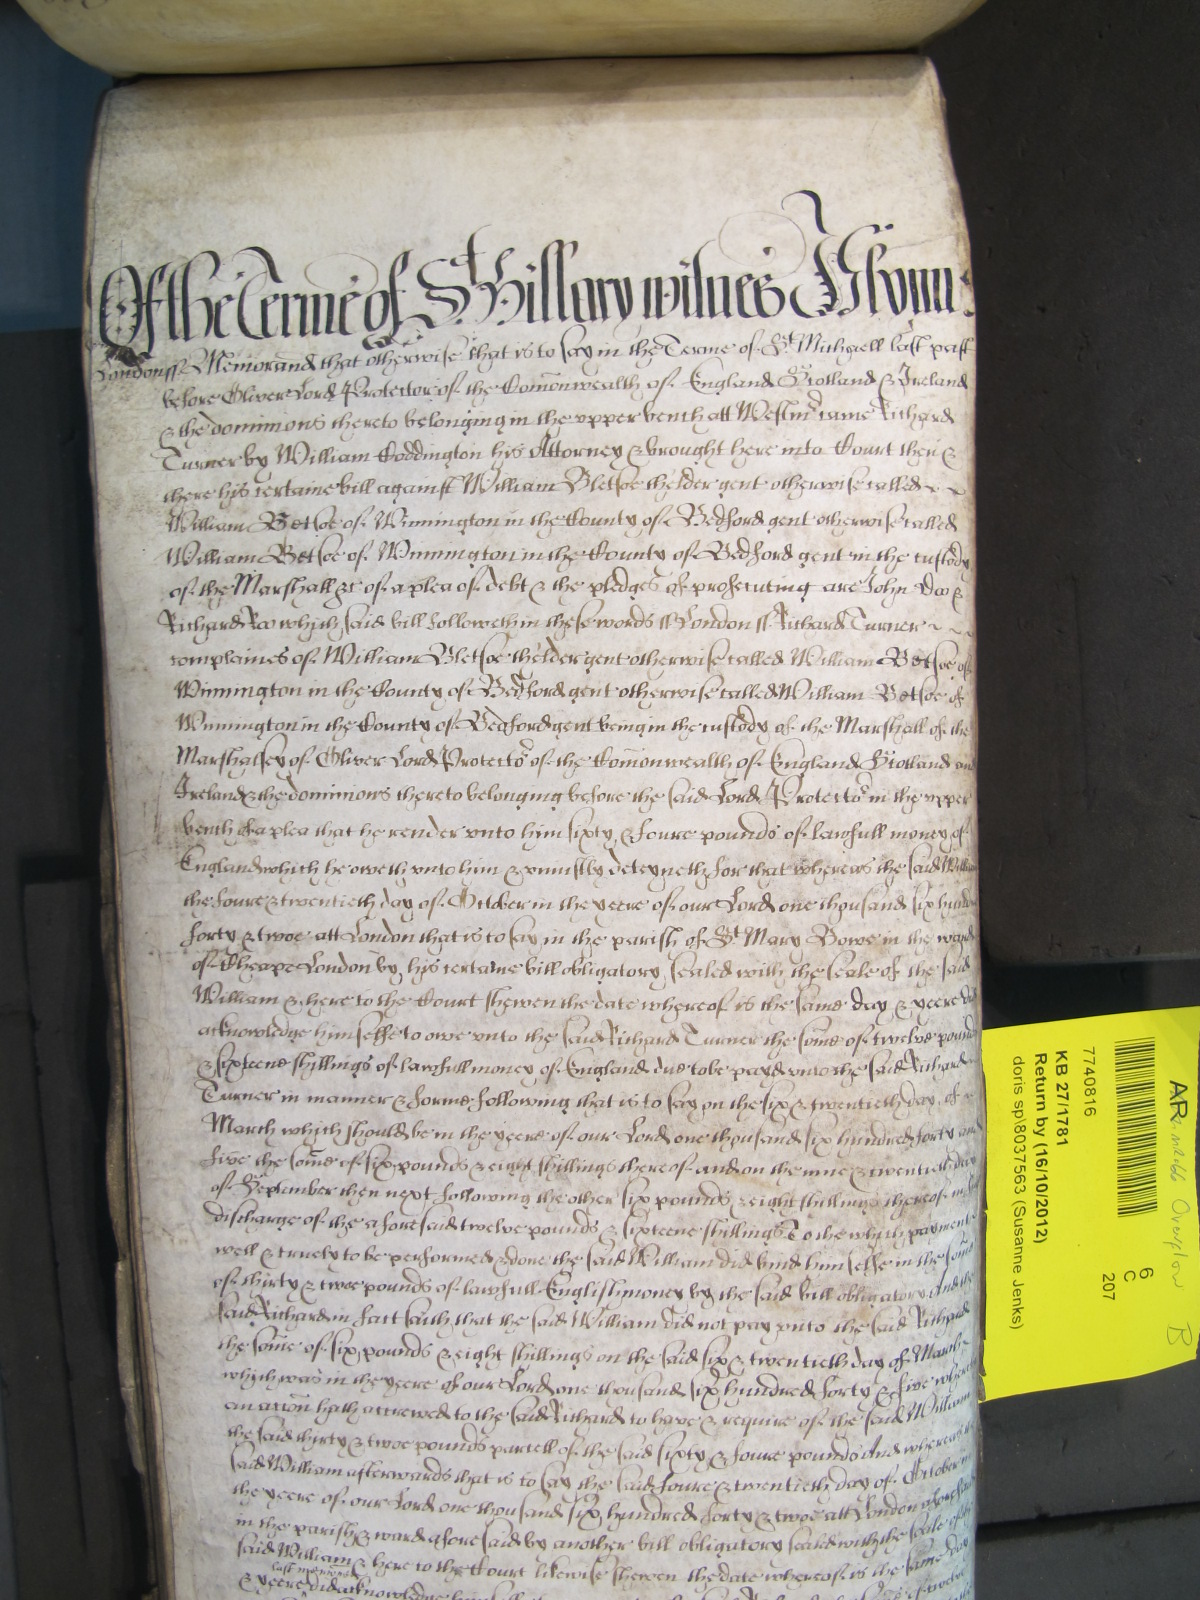 Of the Terme of St Hillary witnes
Londonss Memorand that otherwise that is to say in the Terme of St Michaell last past
before Oliver Lord Protector of the Com̄onwealth of England Scotland & Ireland
& the dominions thereto belonging in the vpper bench att Westmr came Richard
Turner by William Coddington his Attorney & brought here into Court then &
there his certaine bill against William Bletsoe thelder gent otherwise called
William Betsoe of Winnington in the County of Bedford gent otherwise called
William Betsoe of Winnington in the County of Bedford gent in the custody
of the Marshall &c of a plea of debt & the pledges of prosecuting are John Doo &
Richard Roo which said bill followeth in these words ss London ss Richard Turner
complaines of William Bletsoe thelder gent otherwise called William Betsoe of
Winnington in the County of Bedford gent otherwise called William Betsoe of
Winnington in the County of Bedford gent being in the custody of the Marshall of the
Marshalsey of Oliver Lord Protector of the Com̄onwealth of England Scotland and
Ireland & the dominions thereto belonging before the said Lord Protector in the vpper
bench of a plea that he render vnto him sixty & foure pounds of lawfull money of
England which he oweth vnto him & vniustly deteyneth for that whereas the said William
the foure & twentieth day of October in the yeere of our Lord one thousand six hundred
forty & twoe att London that is to say in the parish of St Mary Bowe in the ward
of Cheape London by his certaine bill obligatory sealed with the seale of the said
William & here to the Court shewen the date whereof is the same day & yeere did
acknowledge himselfe to owe vnto the said Richard Turner the som̄e of twelve pounds
& sixteene shillings of lawfull money of England due to be payd vnto the said Richard
Turner in manner & forme following that is to say on the six & twentieth day of
March which should be in the yeere of our Lord one thousand six hundred forty and
five the som̄e of six pounds & eight shillings thereof and on the nine & twentieth day
of September then next following the other six pounds & eight shillings thereof in full
discharge of the aforesaid twelve pounds & sixteene shillings To the which payment
well & truely to be performed & done the said William did bind himselfe in the som̄e
of thirty & twoe pounds of lawfull English money by the said bill obligatory And the
said Richard in fact saith that the said William did not pay vnto the said Richard
the som̄e of six pounds & eight shillings on the said six & twentieth day of March
which was in the yeere of our Lord one thousand six hundred forty & five whereby
an acc̄on hath accrewed to the said Richard to have & require of the said William
the said thirty & twoe pounds parcell of the said sixty & foure pounds And whereas the
said William afterwards that is to say the said foure & twentieth day of October in
the yeere of our Lord one thousand six hundred forty & twoe att London aforesaid
in the parish & ward aforesaid by another bill obligatory sealed with the seale of the
said William & here to the Court likewise shewen the date whereof is the same day
last menc̄oned
& yeere did acknowledge himselfe of twelve
7740816
KB 27/1781
Return by (16/10/2012)
doris sp\8037563 (Susanne Jenks)
6
C
207
Overflow
B